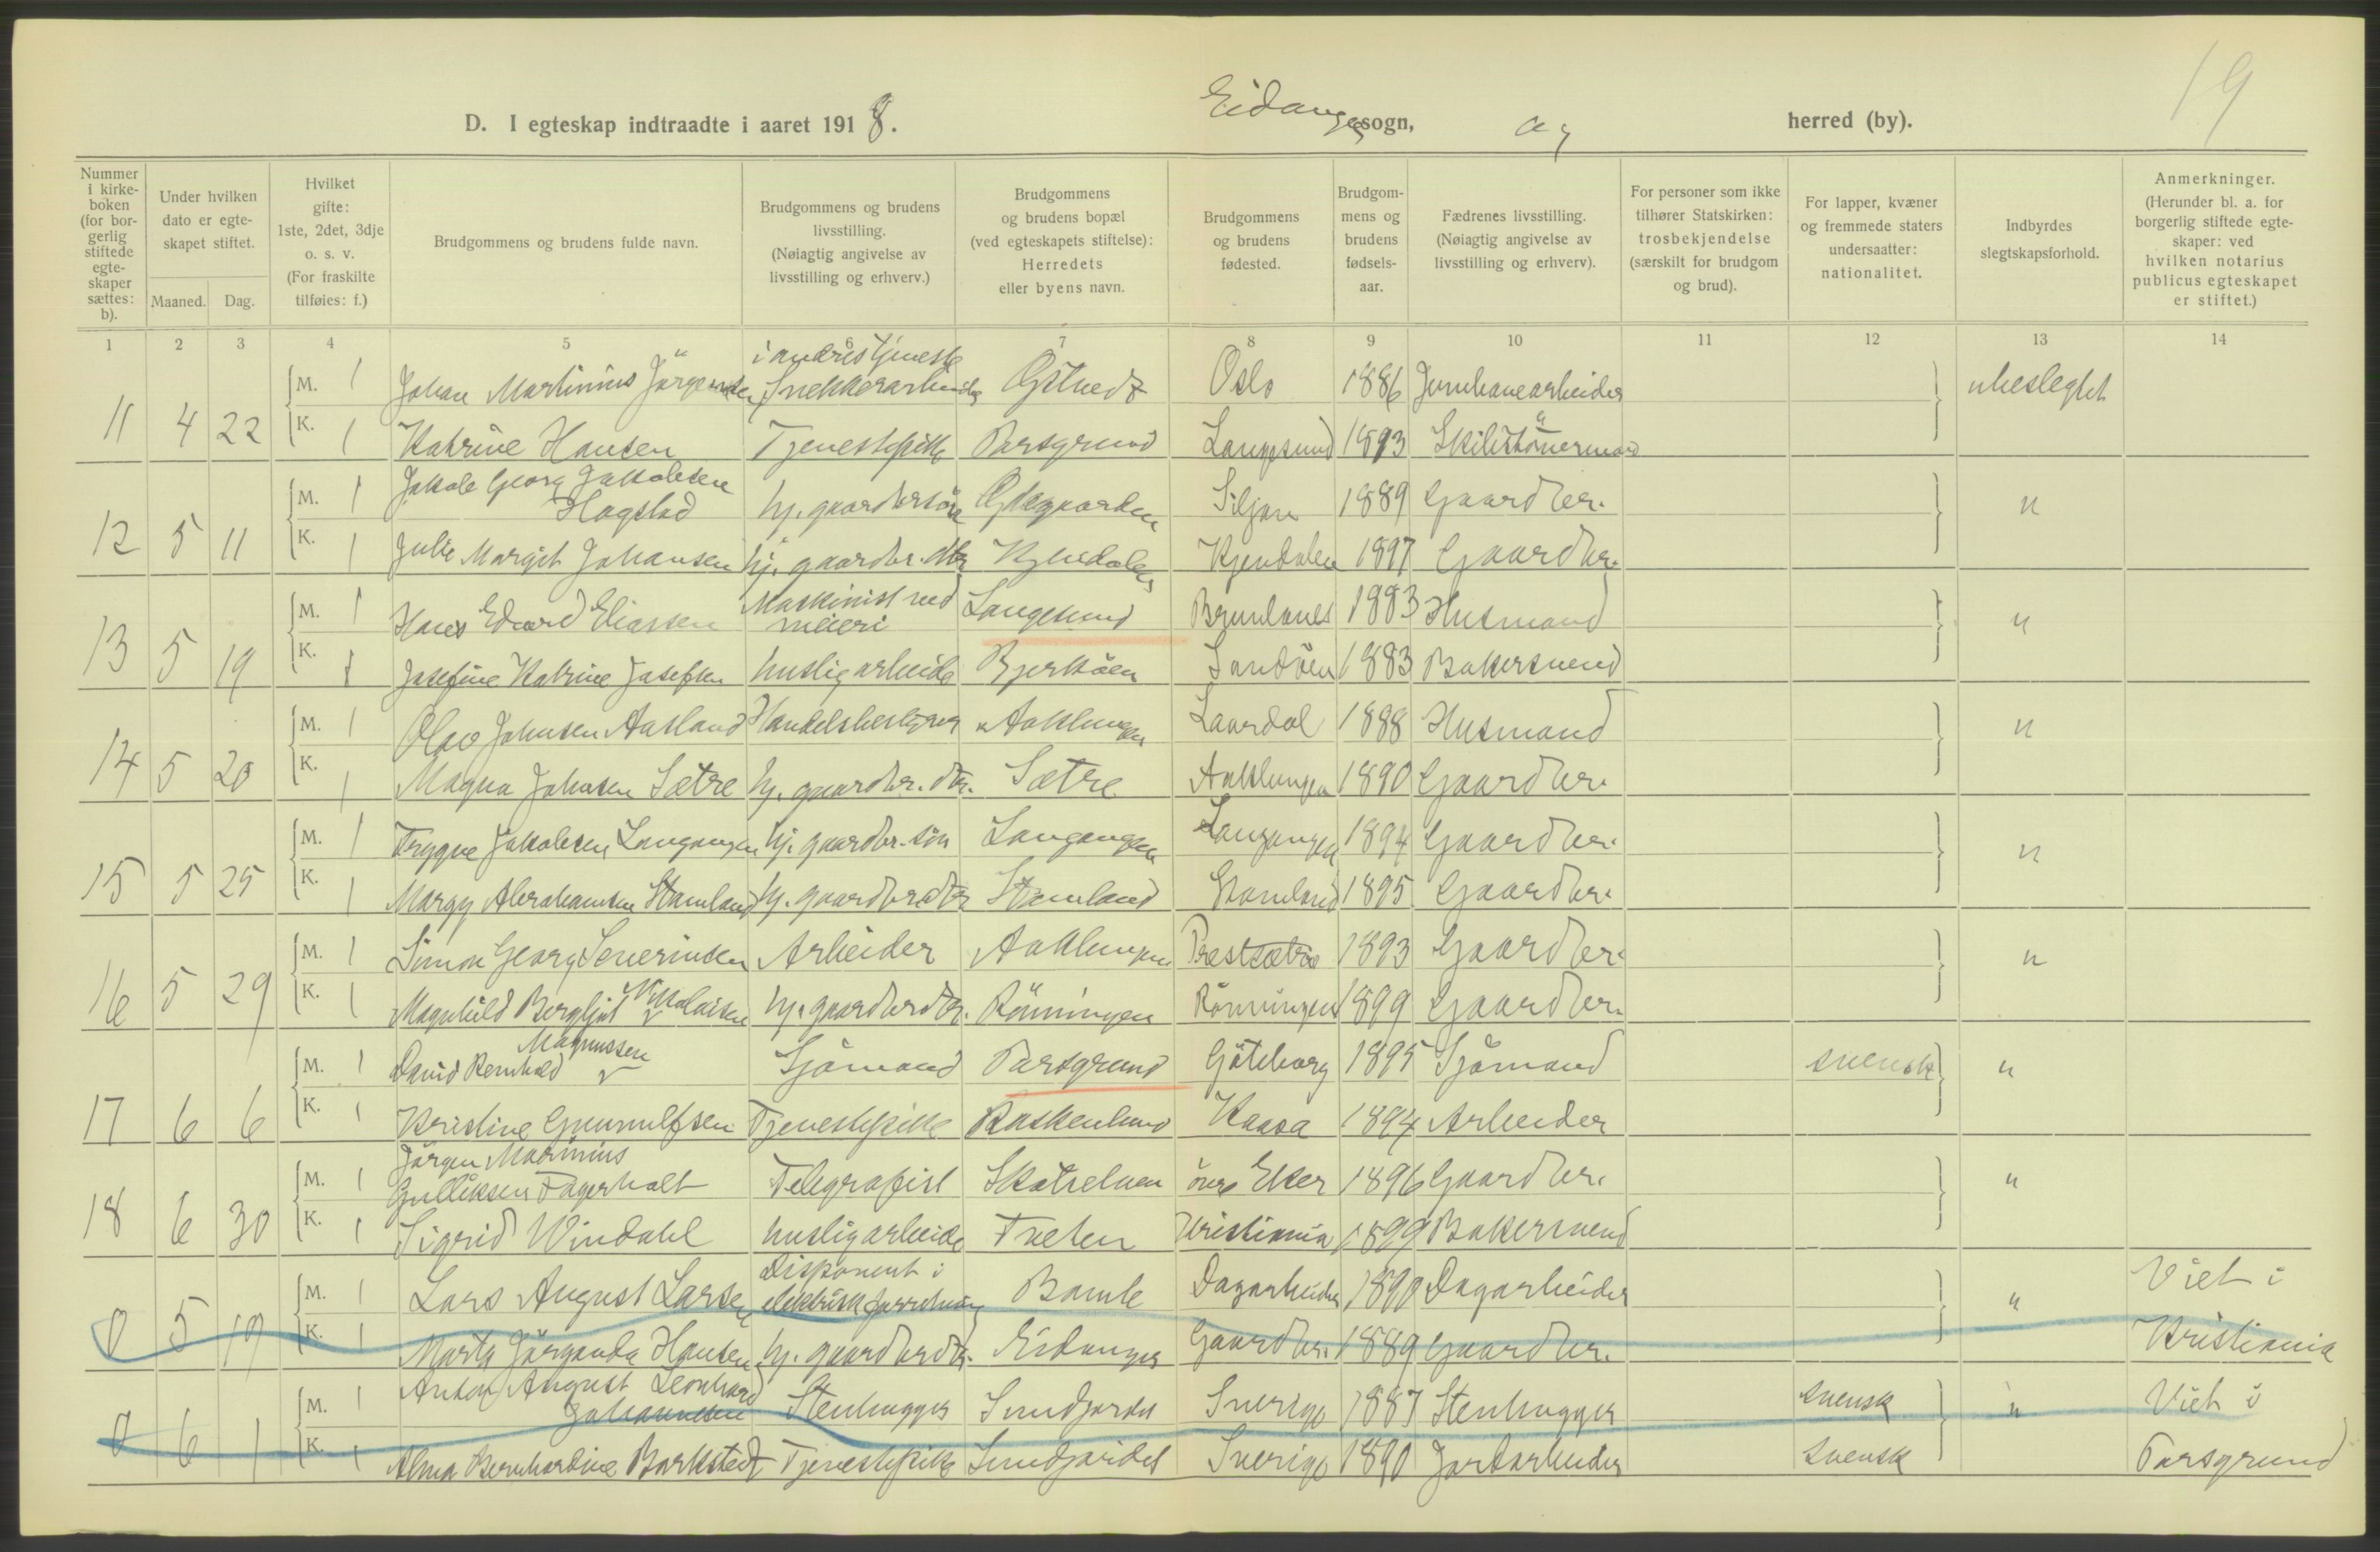 19
D. I egteskap indtraadte i aaret 1918. Eidanger sogn, og herred (by).
Nummer i kirke-boken (for bor-gerlig stiftede egte-skaper sættes: b).
Under hvilken dato er egte-skapet stiftet.
Maaned. Dag.
Hvilket gifte: 1ste, 2det, 3dje o. s. v. (For fraskilte tilføies: f.)
Brudgommens og brudens fulde navn.
Brudgommens og brudens livsstilling. (Nøiagtig angivelse av livsstilling og erhverv.)
Brudgommens og brudens bopæl (ved egteskapets stiftelse): Herredets eller byens navn.
Brudgommens og brudens fødested.
Brudgom-mens og brudens fødsels-aar.
Fædrenes livsstilling. (Nøiagtig angivelse av livsstilling og erhverv).
For personer som ikke tilhører Statskirken: trosbekjendelse (særskilt for brudgom og brud).
For lapper, kvæner og fremmede staters undersaatter: nationalitet.
Indbyrdes slegtskapsforhold.
Anmerkninger. (Herunder bl. a. for borgerlig stiftede egte-skaper: ved hvilken notarius publicus egteskapet er stiftet.)
1 2 3 4 5 6 7 8 9 10 11 12 13 14
i andres tjeneste
M. 1 Johan Martinius Jørgensen Snekkerarbeider Østvedt Oslo 1886 Jernbanearbeider ubeslegtet
11 4 22
K. 1 Katrine Hansen Tjenestepike Porsgrund Langesund 1893 Skibstømermand
Jakob Georg Jakobsen
M. 1 Hagstad hj. gaardbr søn Ødegaarden Siljan 1889 Gaardbr. "
12 5 11
K. 1 Julie Margit Johansen hj. gaardbr. dtr. Kjendalen Kjendalen 1897 Gaardbr.
Maskinist ved
M. 1 Hans Edvard Eliassen meieri Langesund Brunlanes 1883 Husmand "
13 5 19
K. 1 Josefine Katrine Josefsen huslig arbeide Bjerkøen Sandøen 1883 Bakersvend
M. 1 Olav Johnsen Aasland Handelsbestyrer Aaklungen Laardal 1888 Husmand "
14 5 20
K. 1 Magna Johnsen Sætre hj. gaardbr. dtr. Sætre Aaklungen 1890 Gaardbr.
M. 1 Trygve Jakobsen Langangen hj. gaardbr. søn Langangen Langangen 1894 Gaardbr. "
15 5 25
K. 1 Margy Abrahamsen Stamland hj. gaardbr dtr Stamland Stamland 1895 Gaardbr.
M. 1 Simon Georg Severinsen Arbeider Aaklungen Prestsætra 1893 Gaardbr. "
16 5 29
K. 1 Magnhild Bergljot Nikolaisen hj. gaardbr dtr. Rønningen Rønningen 1899 Gaardbr.
Magnussen
M. 1 David Bernhard Sjømand Porsgrund Gøteborg 1895 Sjømand svensk "
17 6 6
K. 1 Kristine Gunnulfsen Tjenestepike Raskenlund Kaasa 1894 Arbeider
Jørgen Marinius
M. 1 Gulliksen Fagerholt Telegrafist Skotselven øvre Eker 1896 Gaardbr. "
18 6 30
K. 1 Sigrid Windahl huslig arbeide Tveten Kristiania 1899 Bakersvend
Disponent i
M. 1 Lars August Larsen elektrisk forretning Bamle Dagarbeider 1890 Dagarbeider " Viet i
0 5 19
K. 1 Marta Jørganda Hansen hj. gaardbr dtr. Eidanger Gaardbr. 1889 Gaardbr. Kristiania
Anton August Leonhard
M. 1 Johannesen Stenhugger Sundjordet Sverige 1887 Stenhugger svensk " Viet i
0 6 1
K. 1 Alma Bernhardine Barkstedt Tjenestepike Sundjordet Sverige 1890 Jordarbeider svensk Porsgrund